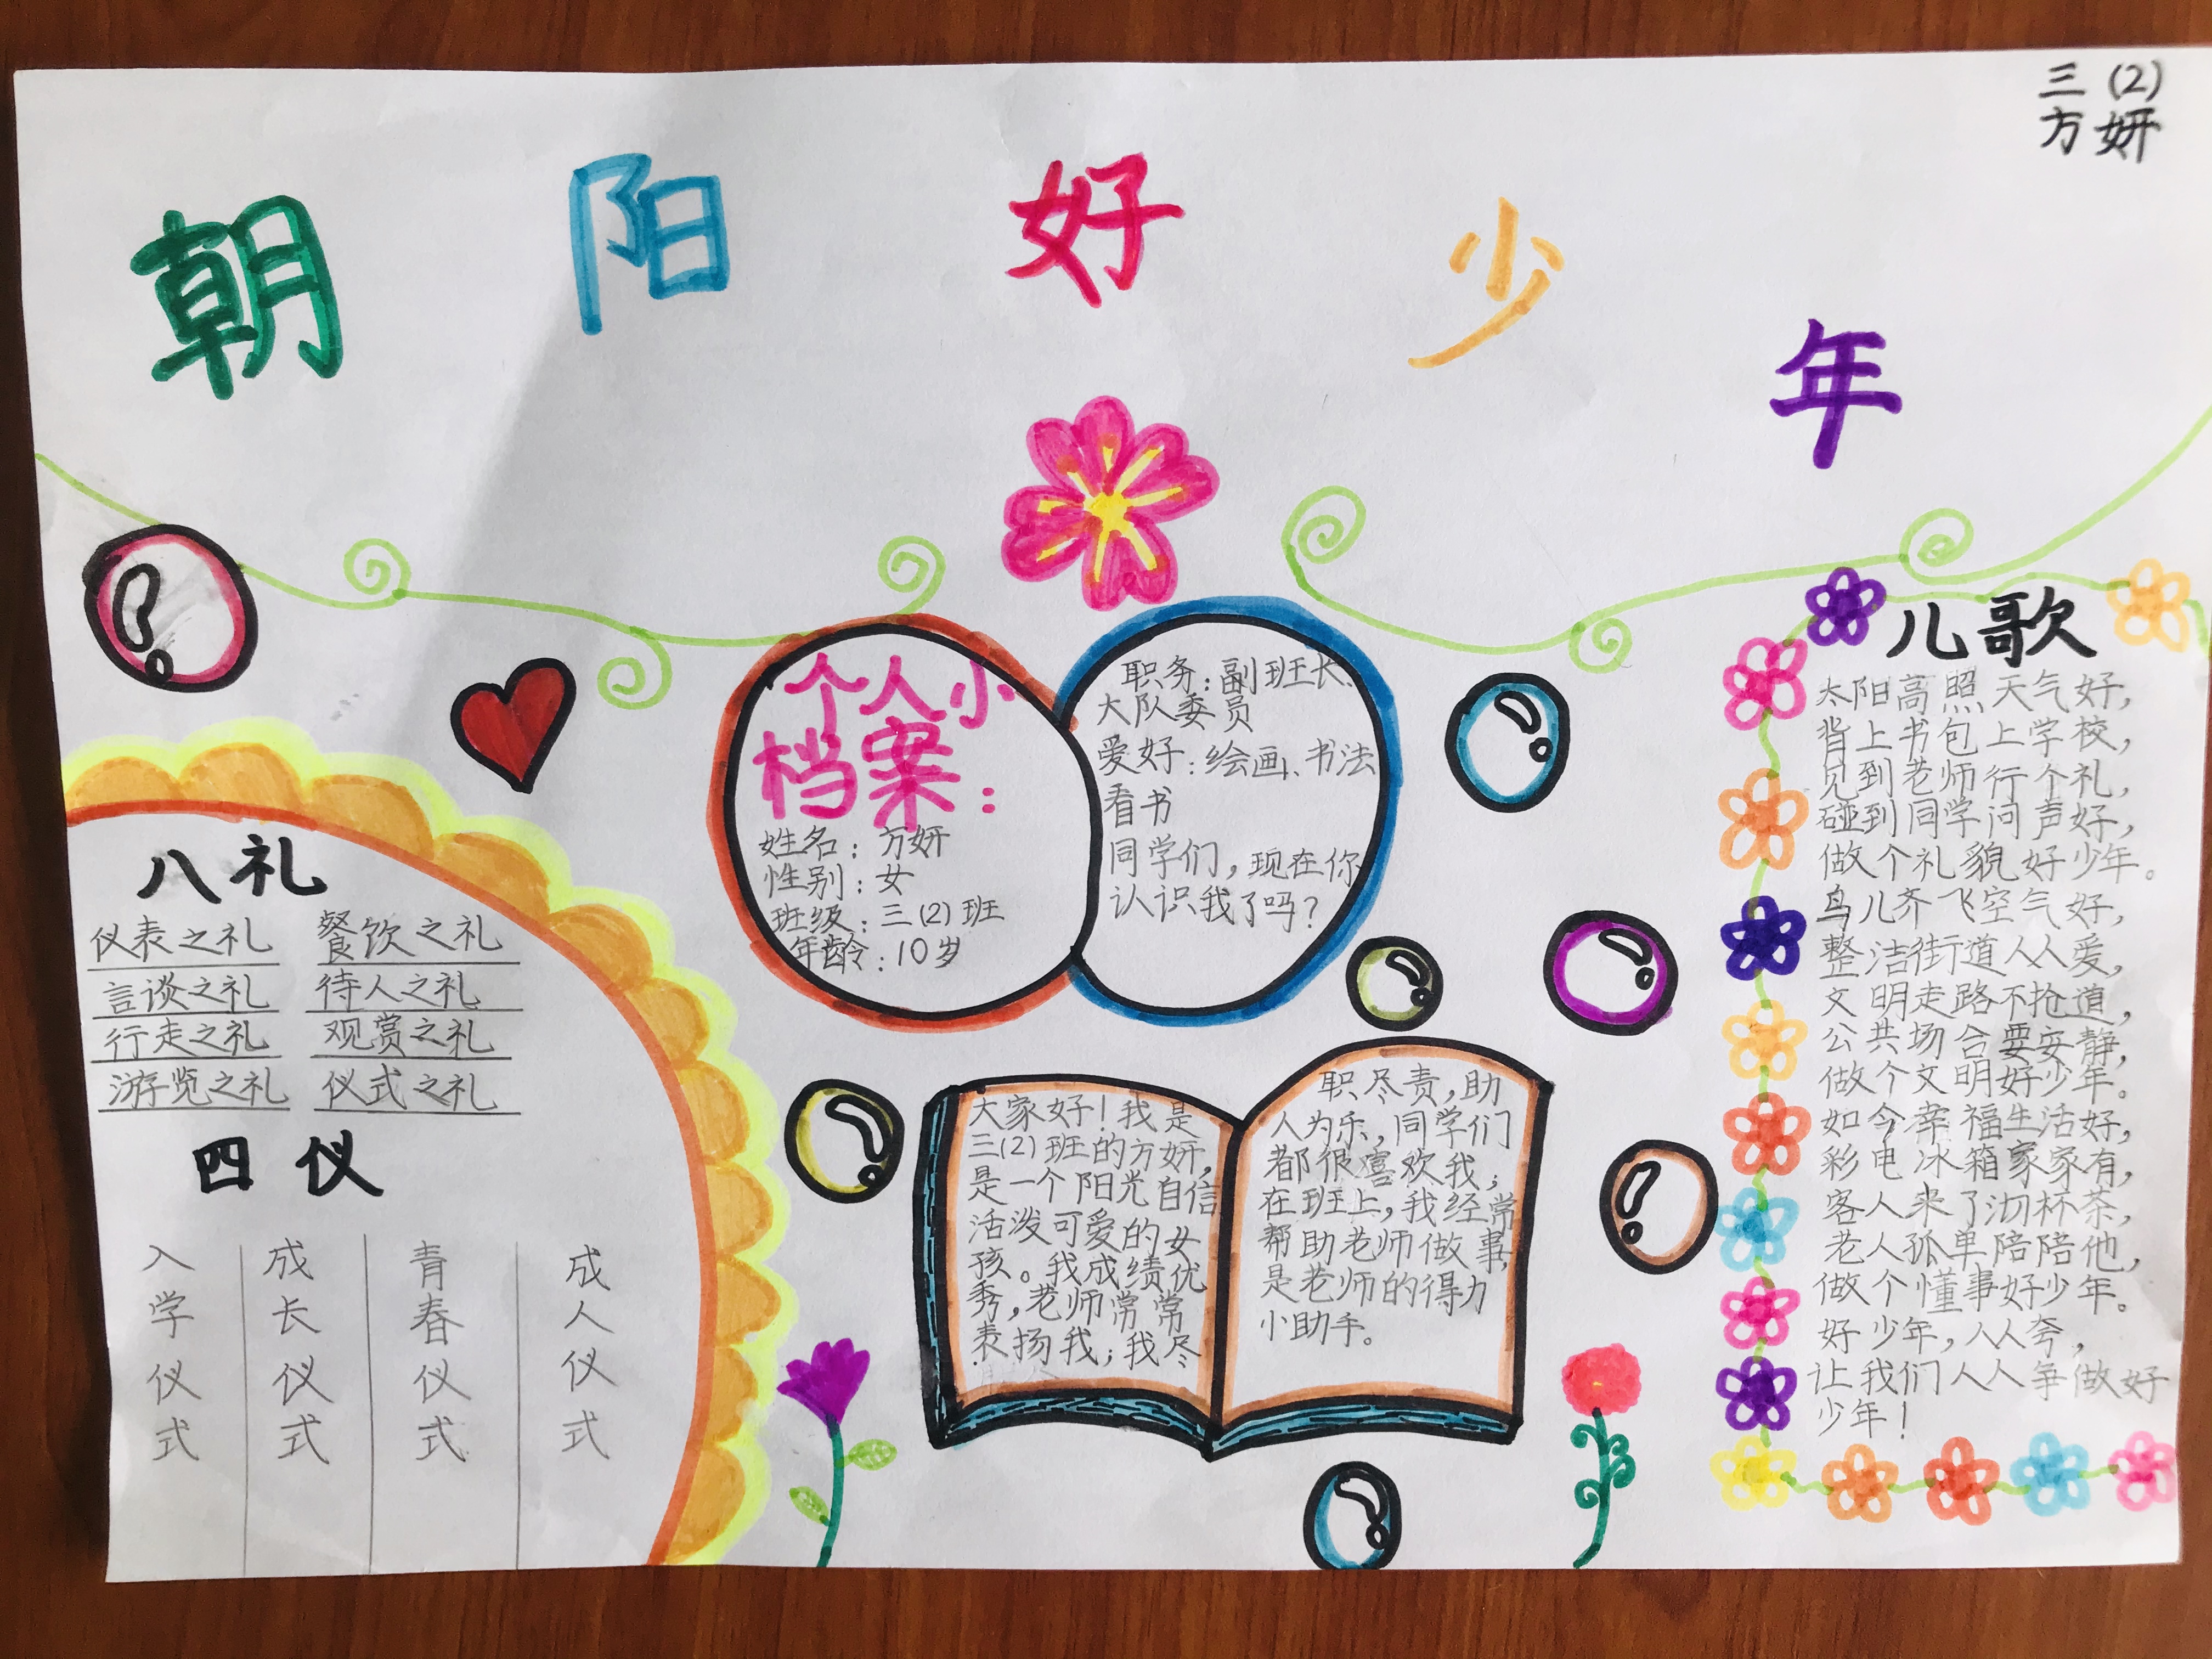 三(2)
方妍
朝阳好少年
八礼
仪表之礼 餐饮之礼
言谈之礼 待人之礼
行走之礼 观赏之礼
游览之礼 仪式之礼
四仪
入学仪式
成长仪式
青春仪式
成人仪式
个人小
档案:
姓名:方妍
性别:女
班级:三(2)班
年龄:10岁
职务:副班长、
大队委员
爱好:绘画、书法
看书
同学们,现在你
认识我了吗?
大家好!我是
三(2)班的方妍,
是一个阳光自信
活泼可爱的女
孩。我成绩优
秀,老师常常
表扬我;我尽
职尽责,助
人为乐,同学们
都很喜欢我;
在班上,我经常
帮助老师做事,
是老师的得力
小助手。
儿歌
太阳高照天气好,
背上书包上学校,
见到老师行个礼,
碰到同学问声好,
做个礼貌好少年。
鸟儿齐飞空气好,
整洁街道人人爱,
文明走路不抢道,
公共场合要安静,
做个文明好少年。
如今幸福生活好,
彩电冰箱家家有,
客人来了沏杯茶,
老人孤单陪陪他,
做个懂事好少年。
好少年,人人夸,
让我们人人争做好
少年!